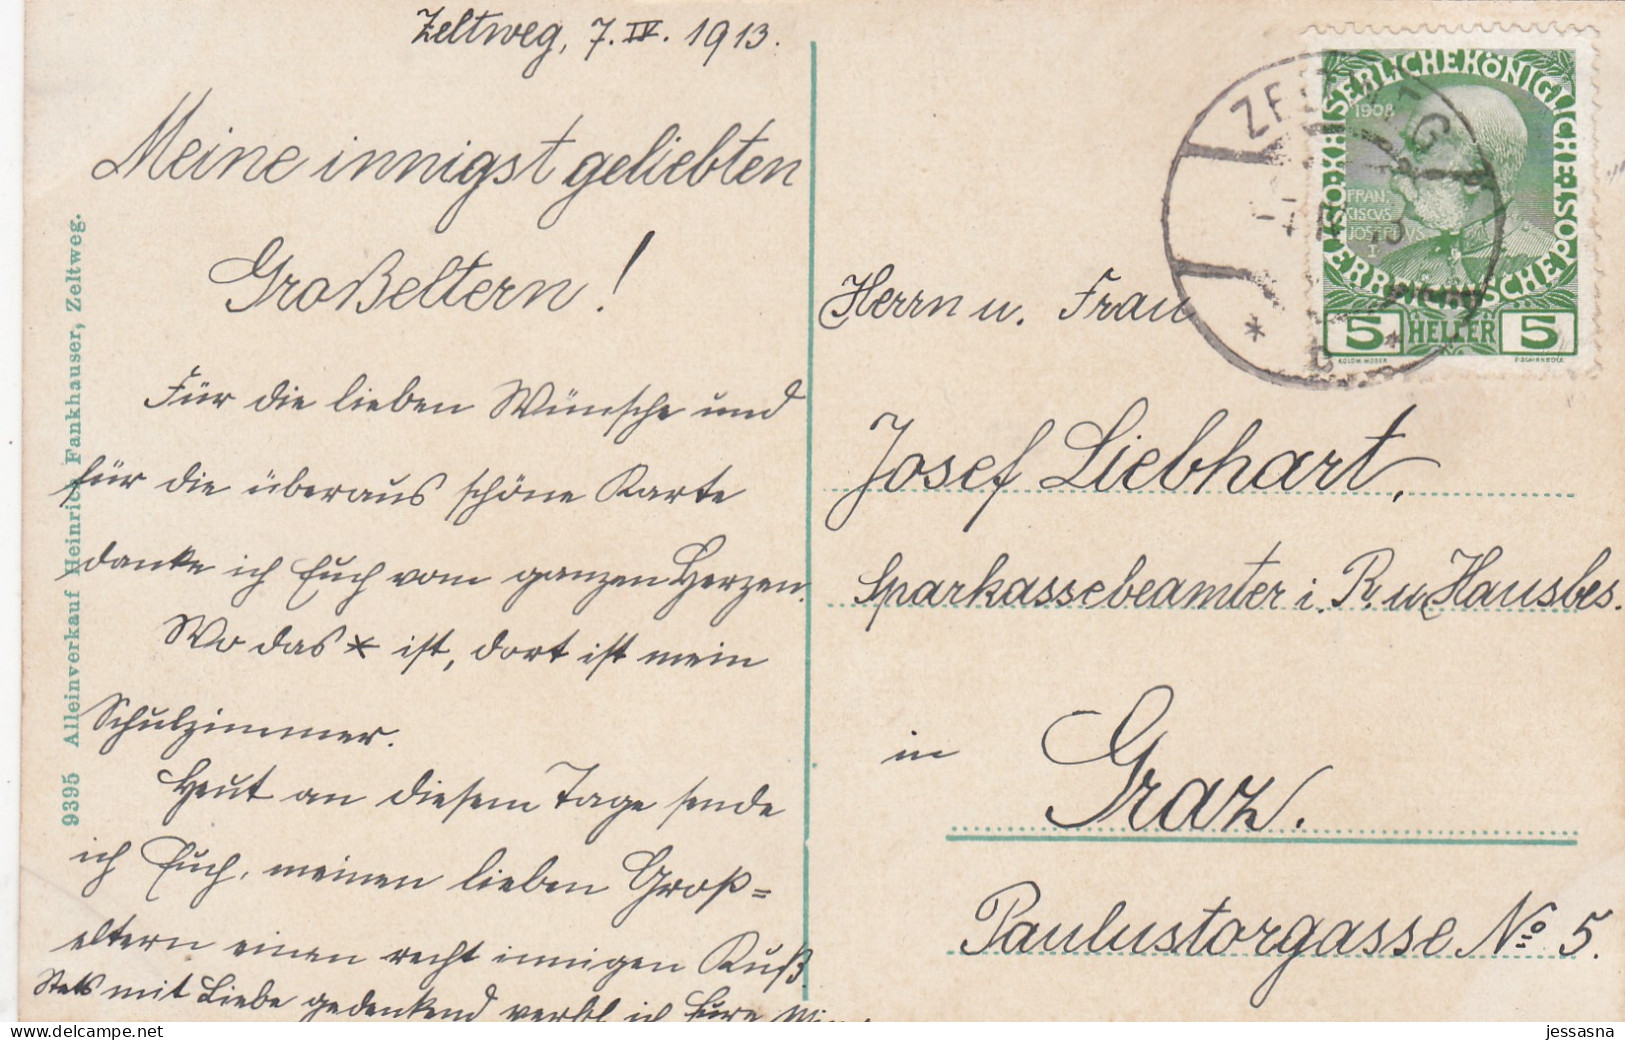 Zeltweg, 7. IV. 1913.
Meine innigst geliebten
Großeltern!
Für die lieben Wünsche und
für die überaus schöne Karte
danke ich Euch vom ganzen Herzen.
Wo das * ist, dort ist mein
Schulzimmer.
Heut an diesem Tage sende
ich Euch, meinen lieben Groß=
eltern einen recht innigen Kuß.
Stets mit Liebe gedenkend verbl. ich Eure
9395 Alleinverkauf Heinrich Fankhauser, Zeltweg.
KAISERLICHE KÖNIGLICHE ÖSTERREICHISCHE POST
1908
FRAN
CISCVS
JOSEPHVS
I
5 HELLER 5
Herrn u. Frau
Josef Liebhart,
Sparkassebeamter i. R. u. Hausbes.
in Graz.
Paulustorgasse No 5.
jessasna